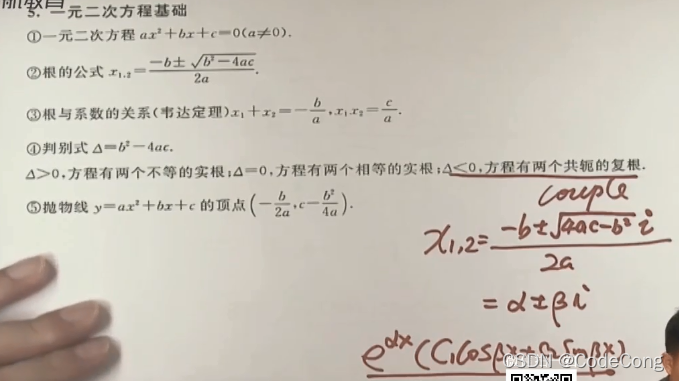 5. 一元二次方程基础
①一元二次方程 ax²+bx+c=0(a≠0).
②根的公式 x₁,₂=(-b±√(b²-4ac))/2a.
③根与系数的关系(韦达定理)x₁+x₂=-b/a,x₁x₂=c/a.
④判别式 Δ=b²-4ac.
Δ>0,方程有两个不等的实根;Δ=0,方程有两个相等的实根;Δ<0,方程有两个共轭的复根.
⑤抛物线 y=ax²+bx+c 的顶点(-b/2a,c-b²/4a).
couple
x₁,₂=(-b±√(4ac-b²) i)/2a
=α±βi
e^αx(C₁cosβx+C₂sinβx)
CSDN @CodeCong